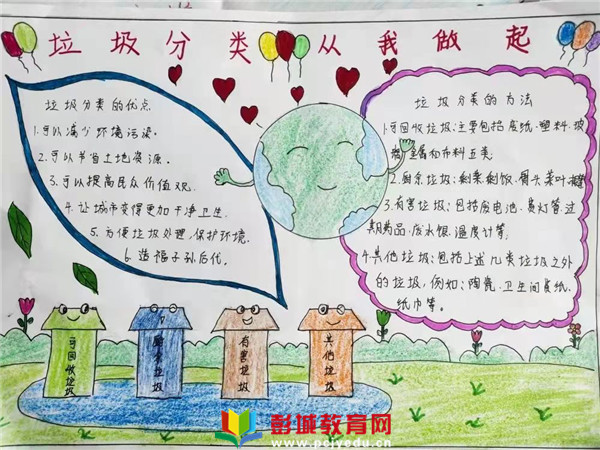 垃圾分类从我做起
垃圾分类的优点
1.可以减少环境污染。
2.可以节省土地资源。
3.可以提高民众价值观。
4.让城市变得更加干净卫生.
5.方便垃圾处理,保护环境.
6.造福子孙后代.
垃圾分类的方法
1.可回收垃圾:主要包括废纸.塑料.玻
璃.金属和布料五类;
2.厨余垃圾:剩菜剩饭、骨头菜叶
3.有害垃圾:包括废电池、废灯管.过
期药品、废水银、温度计等;
4.其他垃圾:包括上述几类垃圾之外
的垃圾,例如:陶瓷.卫生间废纸.
纸巾等。
可回收垃圾
厨余垃圾
有害垃圾
其他垃圾
彭城教育网
www.pcjyedu.cn